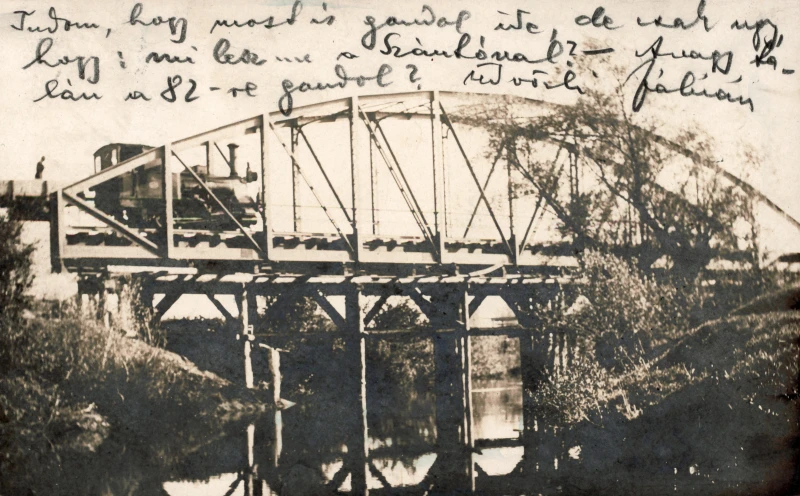 Tudom, hogy most is gondol ide, de csak úgy,
hogy: mi lesz me a Szánkóval? — Avagy ta-
lán a 82-re gondol? Üdvözli Fábián